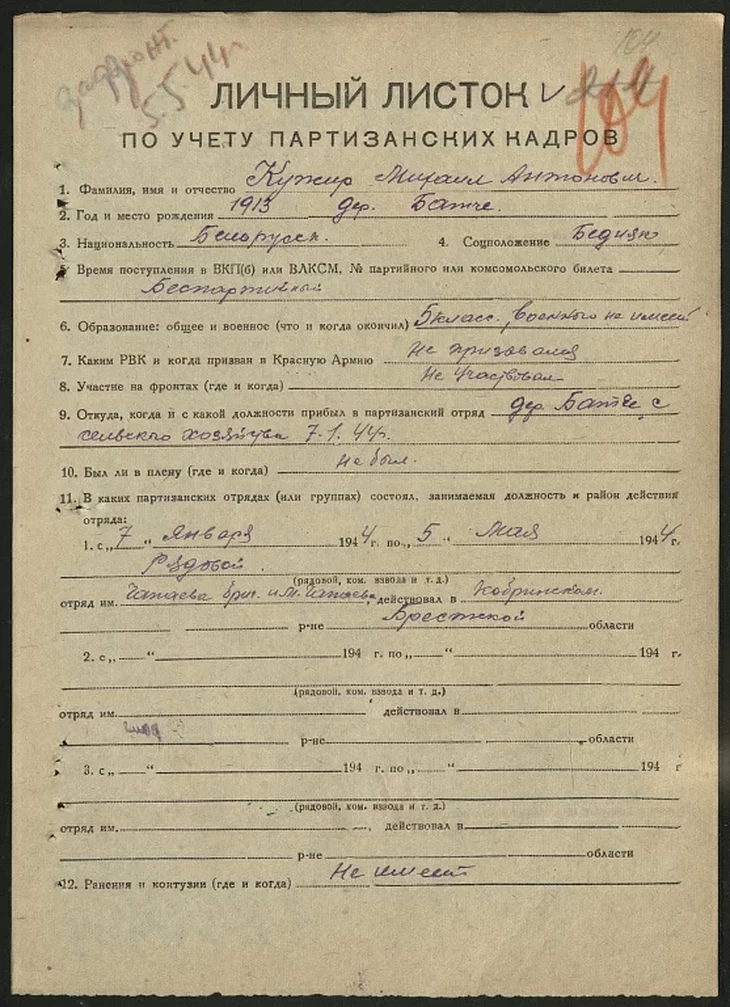 5.5.44г
104
ЛИЧНЫЙ ЛИСТОК
ПО УЧЕТУ ПАРТИЗАНСКИХ КАДРОВ
1. Фамилия, имя и отчество Кужир Михаил Антонович.
2. Год и место рождения 1913 дер. Батче.
3. Национальность Белорусск. 4. Соцположение Бедняк
5. Время поступления в ВКП(б) или ВЛКСМ, № партийного или комсомольского билета
Беспартийный
6. Образование: общее и военное (что и когда окончил) 5 класс. военного не имеет
7. Каким РВК и когда призван в Красную Армию Не призывался
8. Участие на фронтах (где и когда) Не участвовал
9. Откуда, когда и с какой должности прибыл в партизанский отряд дер. Батче с
сельского хозяйства 7.1.44г.
10. Был ли в плену (где и когда) не был.
11. В каких партизанских отрядах (или группах) состоял, занимаемая должность и район действия
отряда:
1. с „7“ Января 1944 г. по „5“ Мая 1944 г.
Рядовой.
(рядовой, ком. взвода и т. д.)
отряд им. Чапаева бриг. им. Чапаева, действовал в Кобринском
р-не Брестской области
2. с „ “ 194 г. по „ “ 194 г.
(рядовой, ком. взвода и т. д.)
отряд им. действовал в
р-не области
3. с „ “ 194 г. по „ “ 194 г
(рядовой, ком. взвода и т. д.)
отряд им. , действовал в
р-не области
12. Ранения и контузии (где и когда) Не имеет